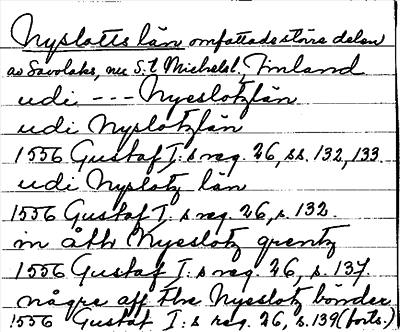 Nyslotts län omfattade större delen
av Savolaks, nu S:t Michels l., Finland
udi --- Nyeslotzlän
udi Nyslotzlän
1556 Gustaf I:s reg. 26, ss. 132, 133
udi Nyslotz län
1556 Gustaf I:s reg. 26, s. 132.
in åth Nyeslotz grentz
1556 Gustaf I:s reg. 26, s. 137.
någre aff the Nyeslotz bönder
1556 Gustaf I:s reg. 26, s. 139 (forts.)